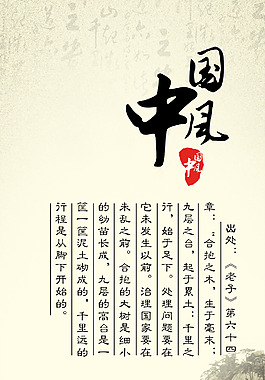 中国风
中国
出处：《老子》第六十四
章：“合抱之木，生于毫末；
九层之台，起于累土；千里之
行，始于足下。处理问题要在
它未发生以前。治理国家要在
未乱之前。合抱的大树是细小
的幼苗长成，九层的高台是一
筐一筐泥土砌成的，千里远的
行程是从脚下开始的。